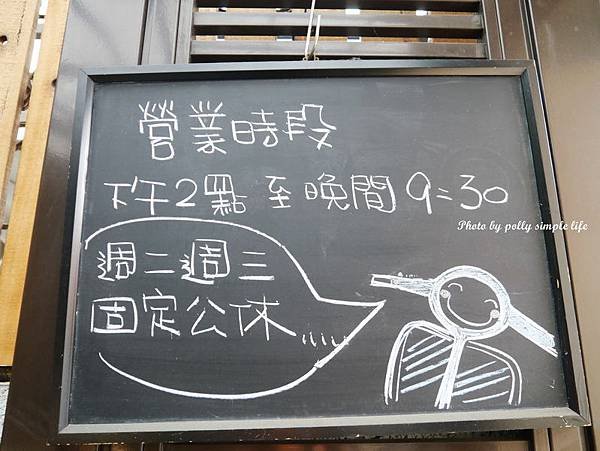 營業時段
下午2點 至 晚間 9:30
Photo by polly simple life
週二週三
固定公休....